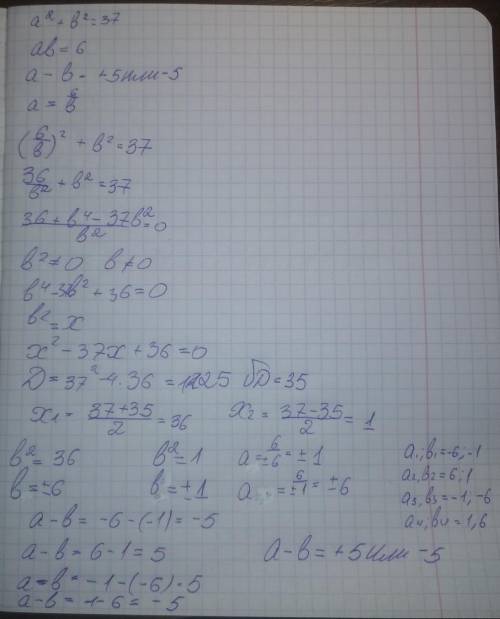 a² + b² = 37
ab = 6
a - b - +5 или -5
a = 6/b
(6/b)² + b² = 37
36/b² + b² = 37
(36 + b⁴ - 37b²)/b² = 0
b² ≠ 0 b ≠ 0
b⁴ - 37b² + 36 = 0
b² = x
x² - 37x + 36 = 0
D = 37² - 4·36 = 1225 √D = 35
x₁ = (37+35)/2 = 36 x₂ = (37-35)/2 = 1
b² = 36 b² = 1 a = 6/±6 = ±1 a₁; b₁ = -6; -1
b = ±6 b = ±1 a = 6/±1 = ±6 a₂, b₂ = 6; 1
a₃, b₃ = -1, -6
a - b = -6 - (-1) = -5 a₄, b₄ = 1, 6
a - b = 6 - 1 = 5 a - b = +5 или -5
a - b = -1 - (-6) = 5
a - b = 1 - 6 = -5